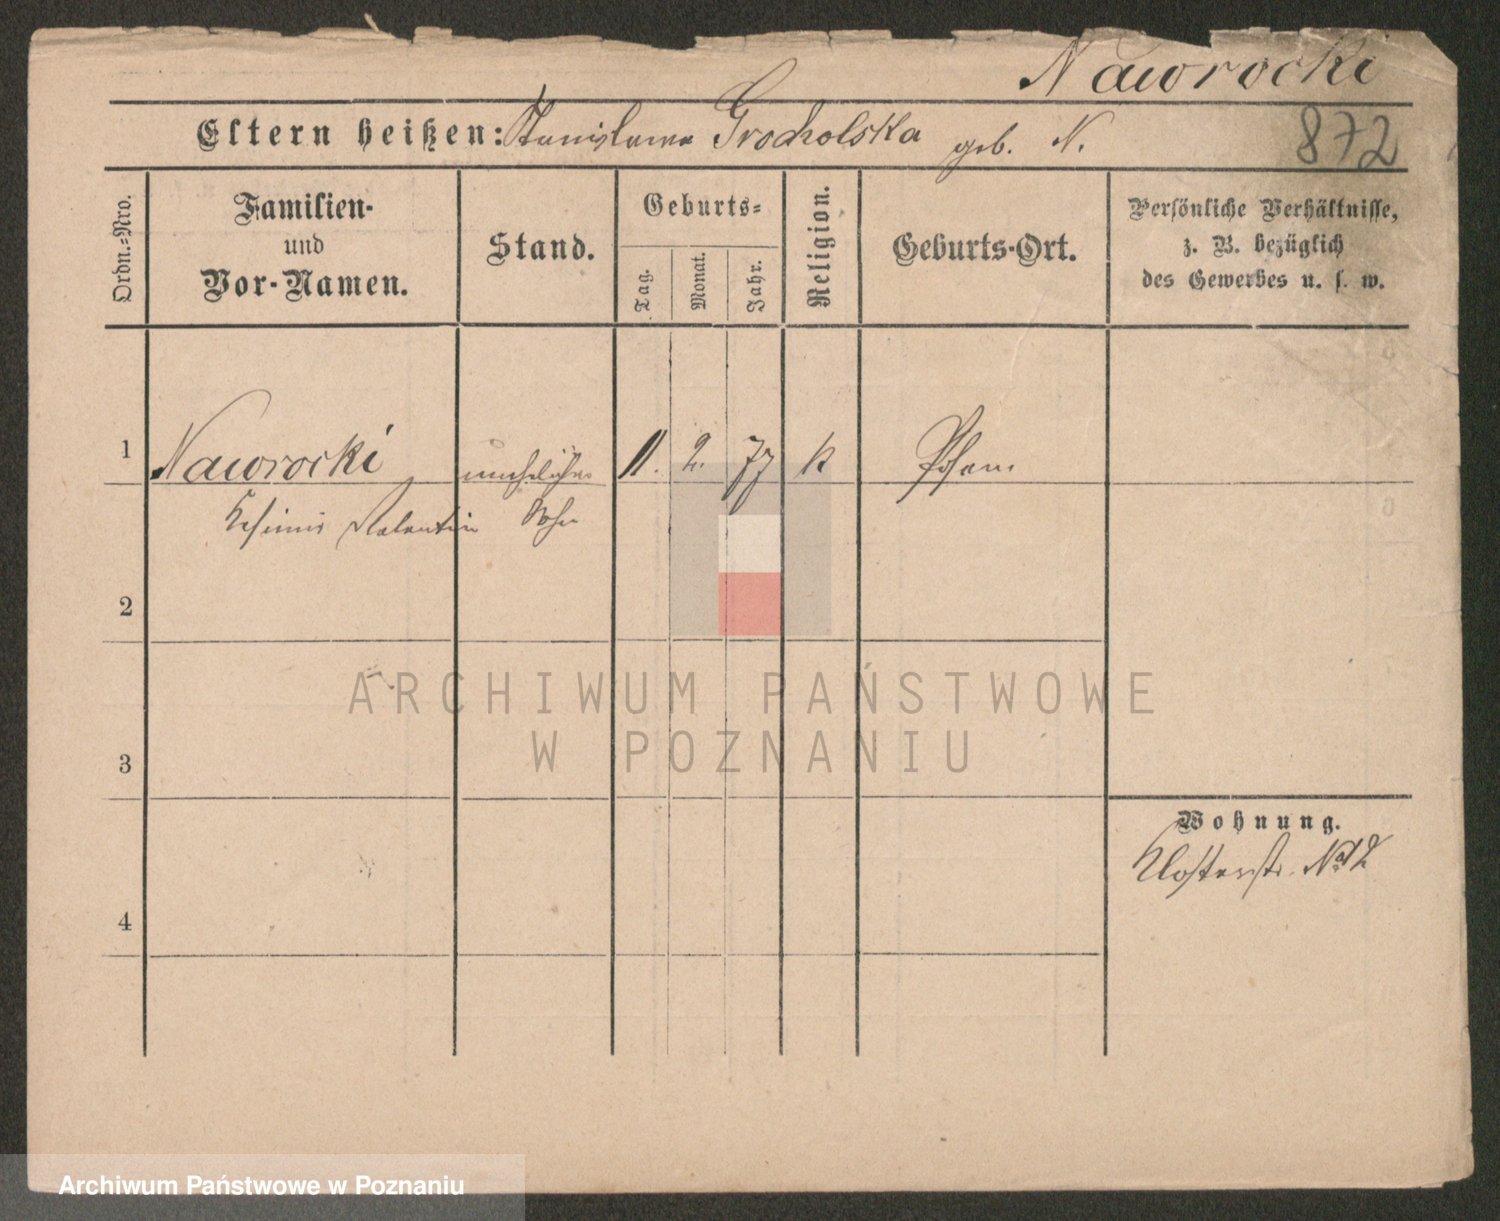 Naworocki
Eltern heißen: Stanislawa Grocholska geb. N.
872
Ordn.-Nro.
Familien-
und
Vor-Namen.
Stand.
Geburts-
Tag.
Monat.
Jahr.
Religion.
Geburts-Ort.
Persönliche Verhältnisse,
z. B. bezüglich
des Gewerbes u. s. w.
1 Naworocki unehelicher 11. 2. 77 k Posen.
Kasimir Valentin Sohn
2
ARCHIWUM PAŃSTWOWE
W POZNANIU
3
Wohnung.
Klosterstr. No 12
4
Archiwum Państwowe w Poznaniu